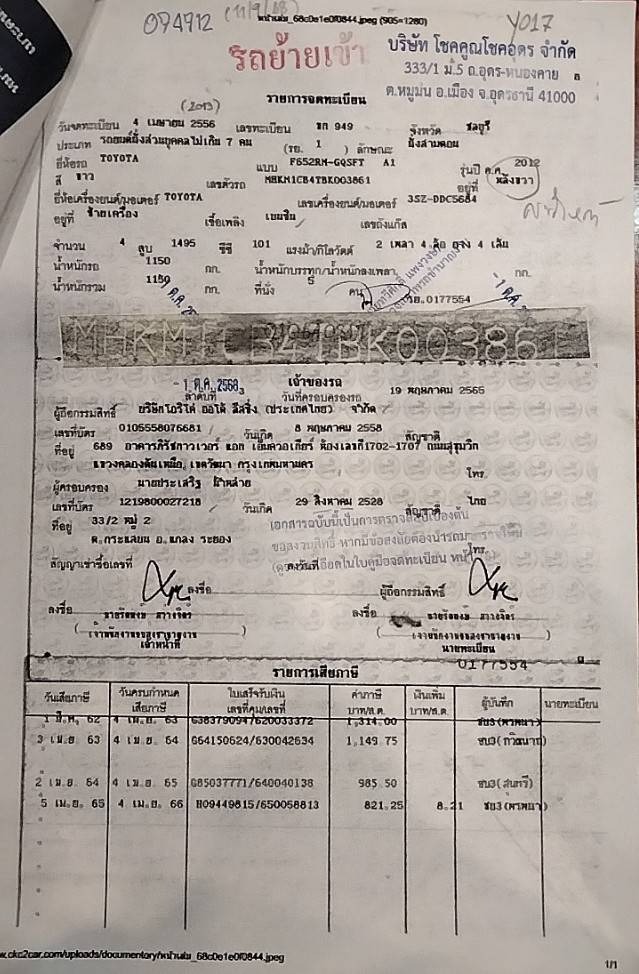 074712 (11/9/68) หน้าเล่ม_68c0e1e0f0844.jpeg (905×1280) Y017
รถย้ายเข้า
บริษัท โชคคูณโชคอุดร จำกัด
333/1 ม.5 ถ.อุดร-หนองคาย
ต.หมูม่น อ.เมือง จ.อุดรธานี 41000
(2013)
รายการจดทะเบียน
วันจดทะเบียน 4 เมษายน 2556 เลขทะเบียน ขก 949 จังหวัด ชลบุรี
ประเภท รถยนต์นั่งส่วนบุคคลไม่เกิน 7 คน (รย. 1 ) ลักษณะ นั่งสามตอน
ยี่ห้อรถ TOYOTA แบบ F652RM-GQSFT A1 รุ่นปี ค.ศ. 2012
สี ขาว เลขตัวรถ MHKM1CB4TBK003861 อยู่ที่ หลังขวา
ยี่ห้อเครื่องยนต์/มอเตอร์ TOYOTA เลขเครื่องยนต์/มอเตอร์ 3SZ-DDC5684
อยู่ที่ ซ้ายเครื่อง เชื้อเพลิง เบนซิน เลขถังแก๊ส
จำนวน 4 สูบ 1495 ซีซี 101 แรงม้า/กิโลวัตต์ 2 เพลา 4 ล้อ ยาง 4 เส้น
น้ำหนักรถ 1150 กก. น้ำหนักบรรทุก/น้ำหนักลงเพลา กก.
น้ำหนักรวม 1150 กก. ที่นั่ง 5 คน
0177554
MHKM1CB4TBK003861
- 1 ต.ค. 2568
เจ้าของรถ
ลำดับที่ 3 วันที่ครอบครองรถ 19 พฤษภาคม 2565
ผู้ถือกรรมสิทธิ์ บริษัทโอริโก้ ออโต้ ลีสซิ่ง (ประเทศไทย) จำกัด
เลขที่บัตร 0105558076681 วันเกิด 8 พฤษภาคม 2558 สัญชาติ
ที่อยู่ 689 อาคารภิรัชทาวเวอร์ แอท เอ็มควอเทียร์ ห้องเลขที่1702-1707 ถนนสุขุมวิท
แขวงคลองตันเหนือ, เขตวัฒนา กรุงเทพมหานคร โทร.
ผู้ครอบครอง นายประเสริฐ
เลขที่บัตร 1219800027218 วันเกิด 29 สิงหาคม 2528 สัญชาติ ไทย
ที่อยู่ 33/2 หมู่ 2
ต.กระแสบน อ.แกลง ระยอง
โทร.
เอกสารฉบับนี้เป็นการตรวจสอบเบื้องต้น
สัญญาเช่าซื้อเลขที่ ลงวันที่
ลงชื่อ ผู้ถือกรรมสิทธิ์
ลงชื่อ ลงชื่อ
เจ้าหน้าที่ นายทะเบียน
0177554
รายการเสียภาษี
วันเสียภาษี วันครบกำหนดเสียภาษี ใบเสร็จรับเงิน เลขที่คุม/เลขที่ ค่าภาษี บาท/ส.ต. เงินเพิ่ม บาท/ส.ต. ผู้บันทึก นายทะเบียน
1 มี.ค. 62 4 เม.ย. 63 G38379094/620033372 1,314.00
3 เม.ย. 63 4 เม.ย. 64 G64150624/630042634 1,149.75
2 เม.ย. 64 4 เม.ย. 65 G85037771/640040138 985.50 ชบ3(สุนทรี)
5 เม.ย. 65 4 เม.ย. 66 H09449815/650058813 821.25 8.21
w.ckc2car.com/uploads/documentary/หน้าเล่ม_68c0e1e0f0844.jpeg 1/1